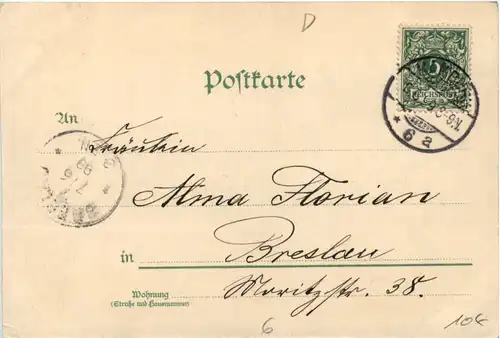 D
Postkarte
5
REICHSPOST
8-9N.
* 6 a
An
Fräulein
Alma Florian
in Breslau
Moritzstr. 38.
Wohnung
(Straße und Hausnummer)
6
10€